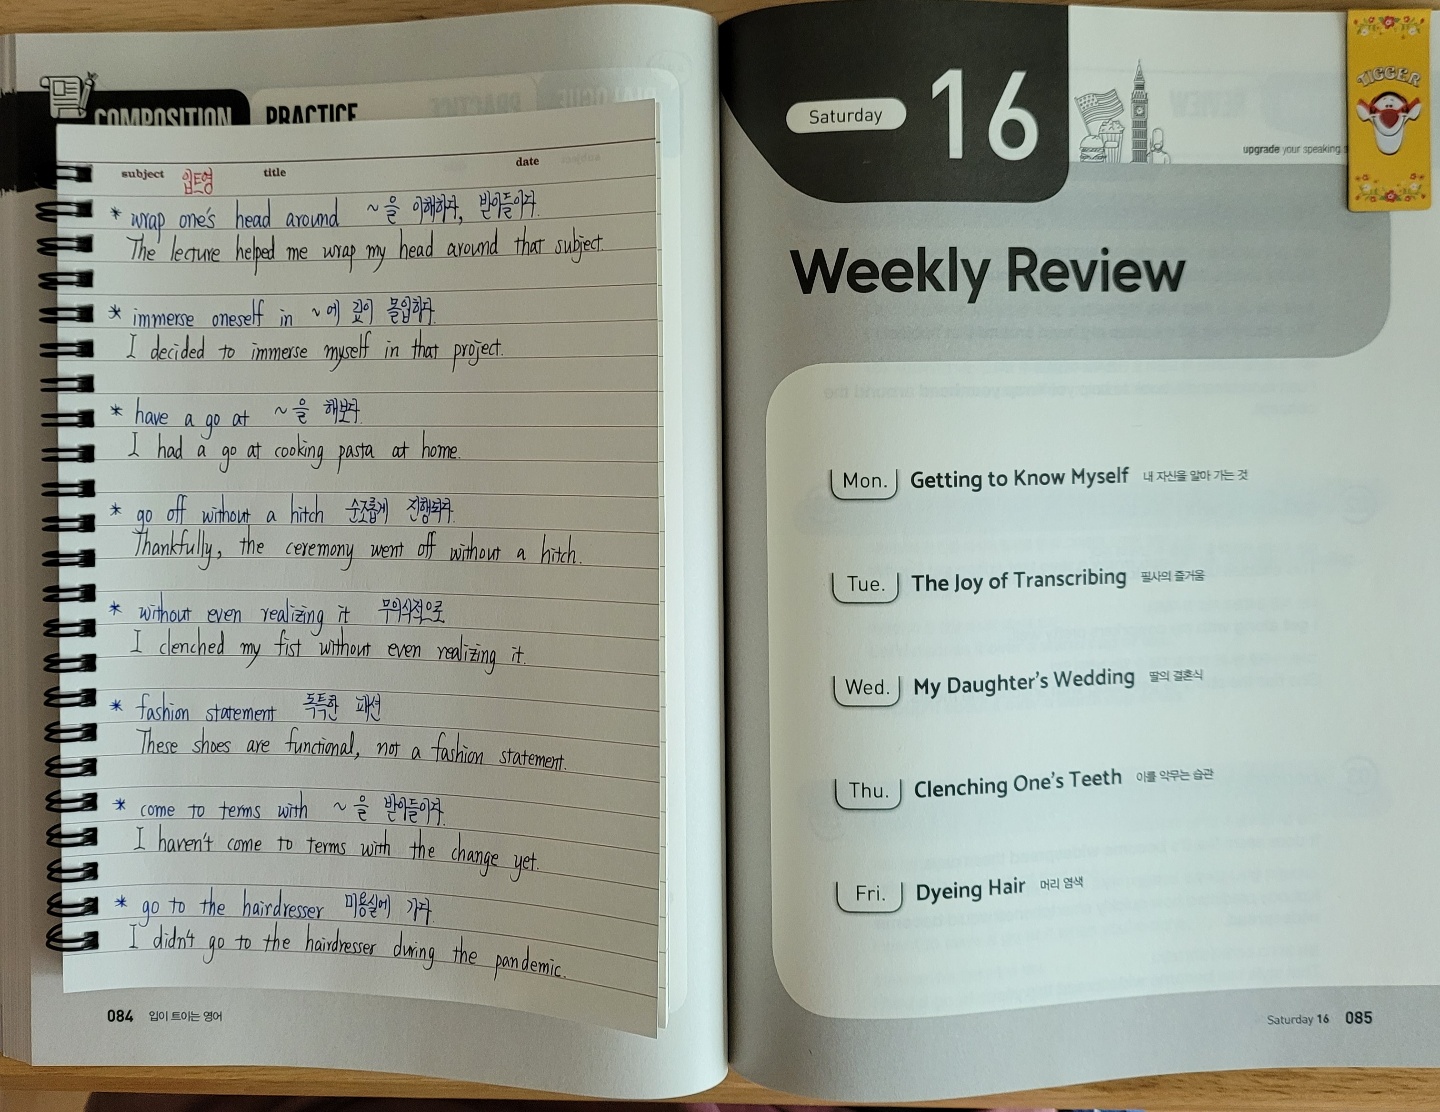 COMPOSITION PRACTICE
subject 입트영 title date
* wrap one's head around ~을 이해하다, 받아들이다.
The lecture helped me wrap my head around that subject.
* immerse oneself in ~에 깊이 몰입하다.
I decided to immerse myself in that project.
* have a go at ~을 해보다.
I had a go at cooking pasta at home.
* go off without a hitch 순조롭게 진행되다.
Thankfully, the ceremony went off without a hitch.
* without even realizing it 무의식적으로
I clenched my fist without even realizing it.
* fashion statement 독특한 패션
These shoes are functional, not a fashion statement.
* come to terms with ~을 받아들이다.
I haven't come to terms with the change yet.
* go to the hairdresser 미용실에 가다.
I didn't go to the hairdresser during the pandemic.
084 입이 트이는 영어
Saturday 16
upgrade your speaking
TIGGER
Weekly Review
Mon. Getting to Know Myself 내 자신을 알아 가는 것
Tue. The Joy of Transcribing 필사의 즐거움
Wed. My Daughter's Wedding 딸의 결혼식
Thu. Clenching One's Teeth 이를 악무는 습관
Fri. Dyeing Hair 머리 염색
Saturday 16 085